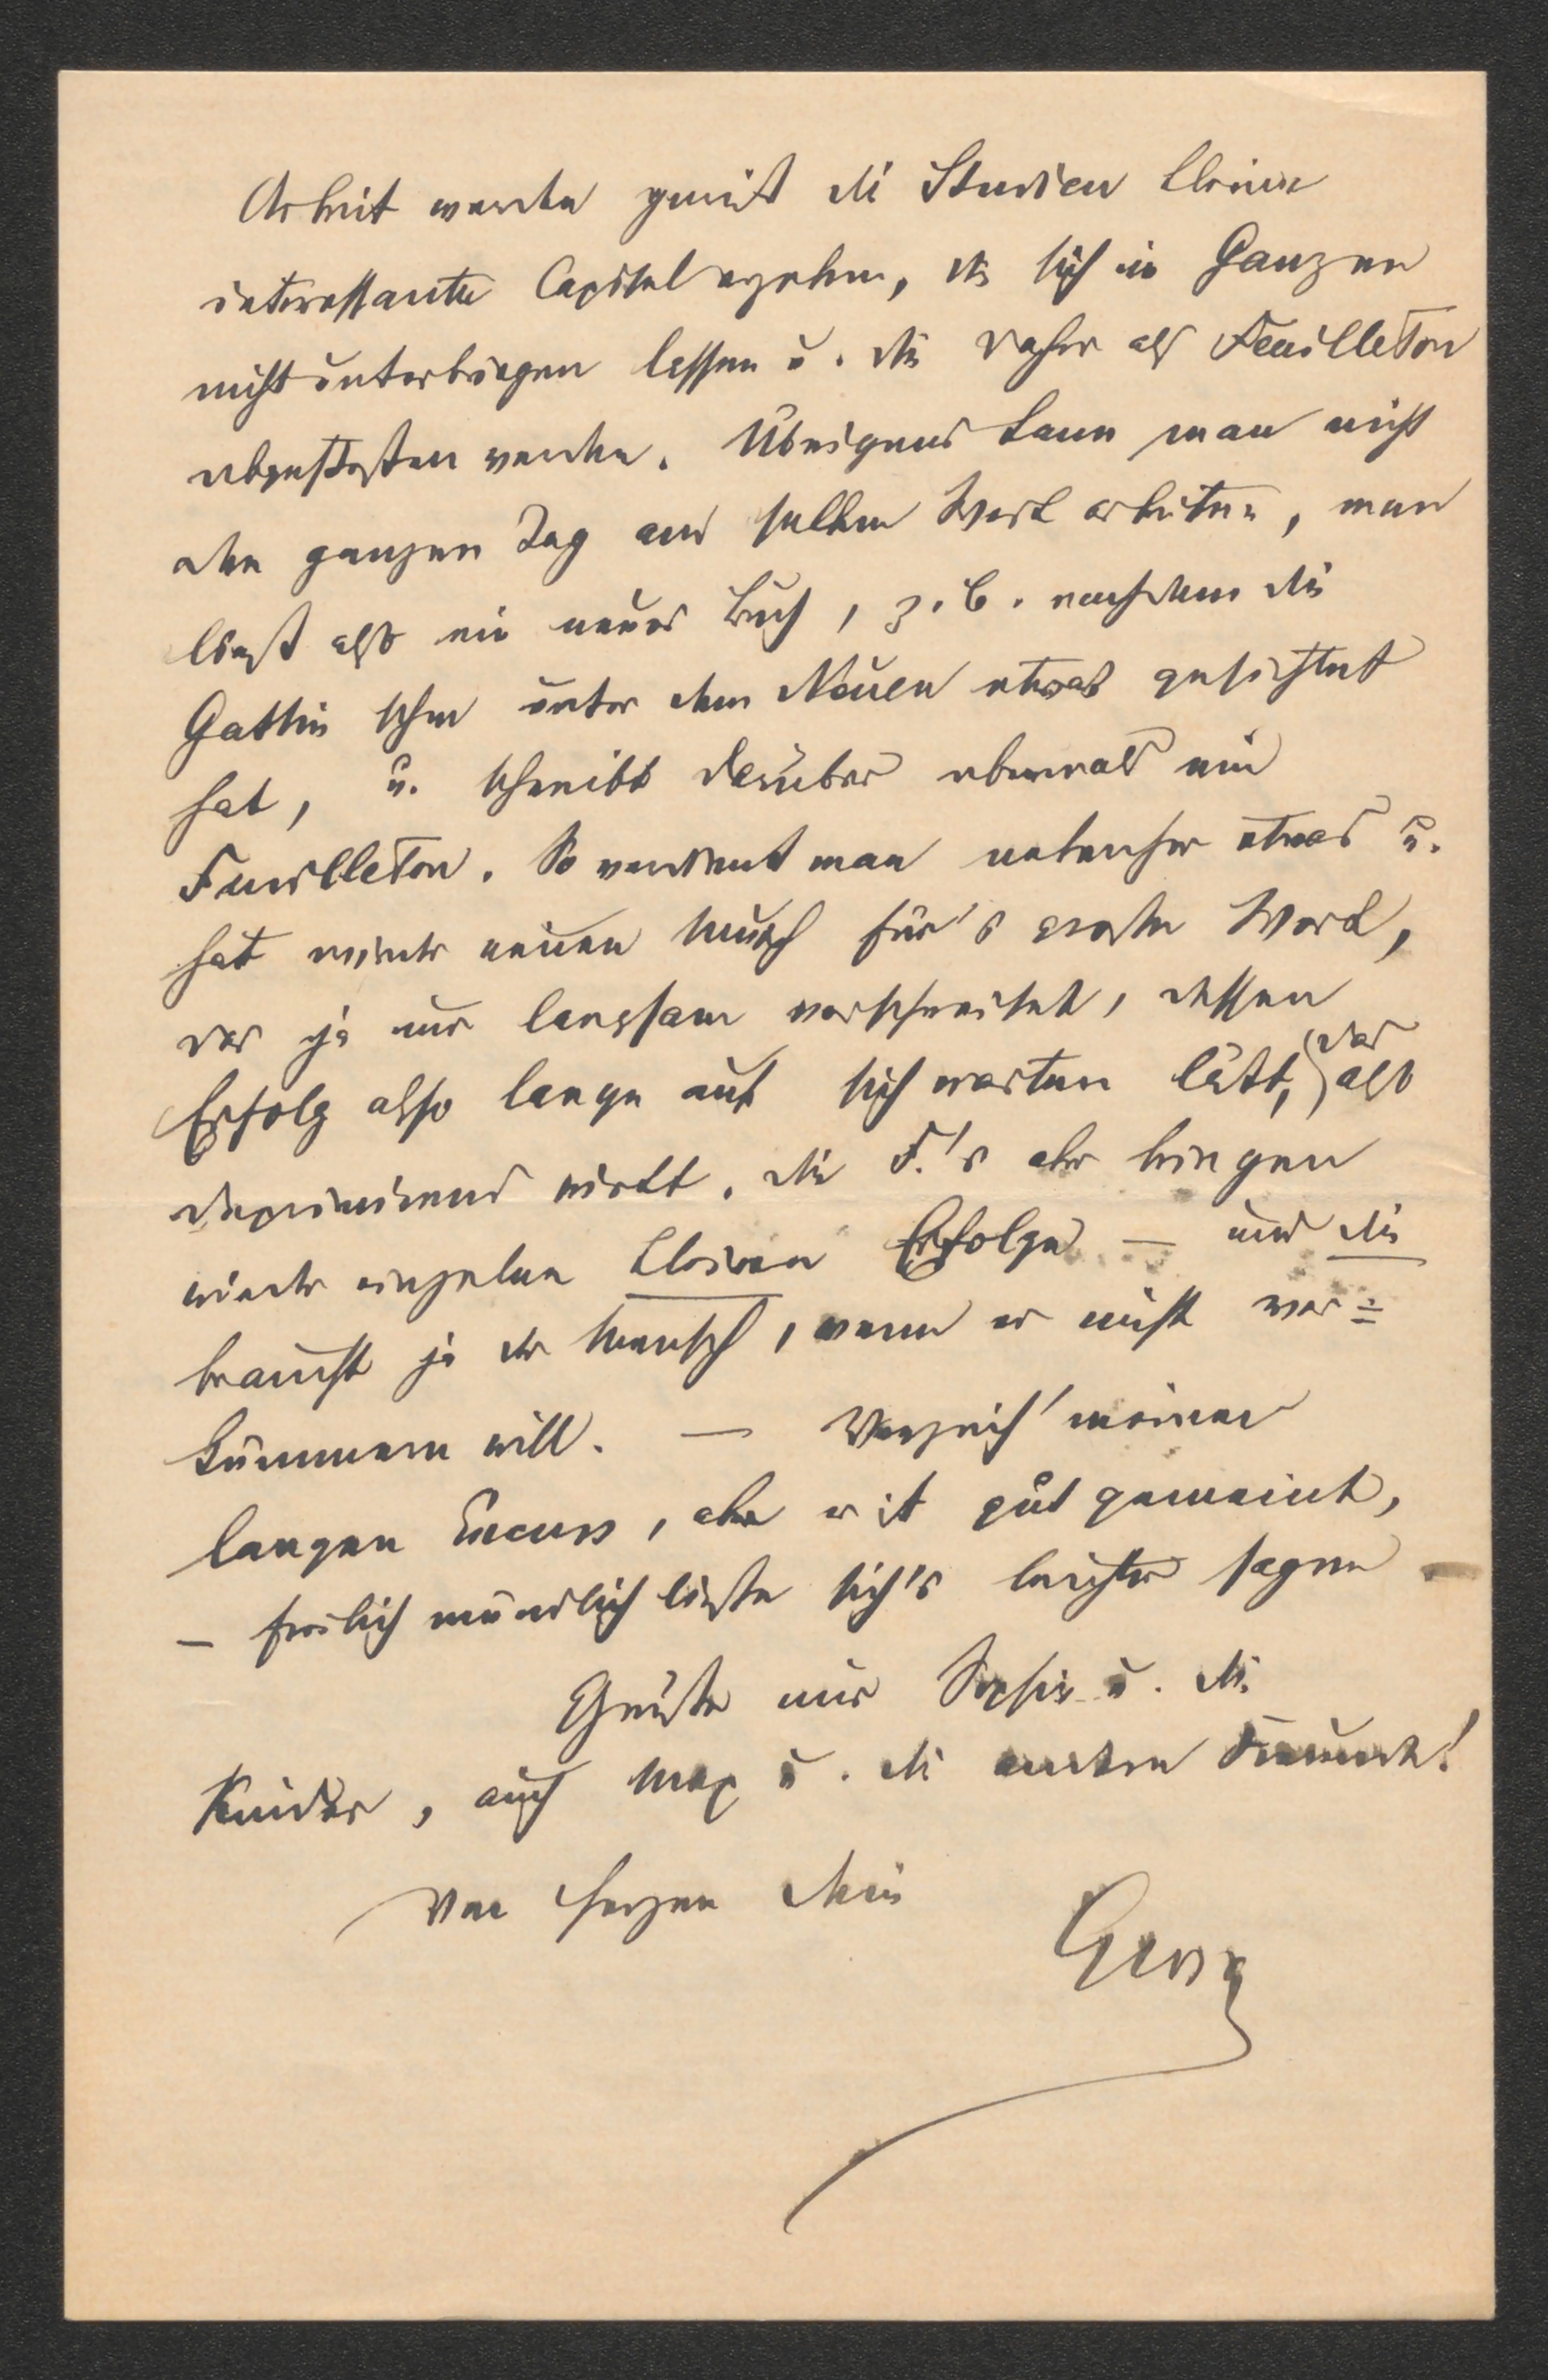 Arbeit werden gewiß die Studien kleine
interessante Capitel ergeben, die sich im Ganzen
nicht unterbringen lassen u. die daher als Feuilleton
abgestoßen werden. Übrigens kann man nicht
den ganzen Tag am selben Werk arbeiten, man
liest also ein neues Buch, z. B. nachdem die
Gattin schon unter dem Neuen etwas gesichtet
hat, u. schreibt darüber abermals ein
Feuilleton. So verdient man nebenher etwas u.
hat wieder neuen Muth für's große Werk,
das ja nur langsam vorschreitet, dessen
Erfolg also lange auf sich warten läßt, (das also
deprimirend wirkt. Die F.'s aber bringen
wieder einzelne kleinen Erfolge – und die
braucht ja der Mensch, wenn er nicht ver=
kümmern will. — Verzeih' meinen
langen Excurs, aber er ist gut gemeint,
– freilich mündlich ließe sich's leichter sagen –
Grüße mir Sophie u. die
Kinder, auch Max u. die andren Freunde!
Von Herzen Dein
Georg